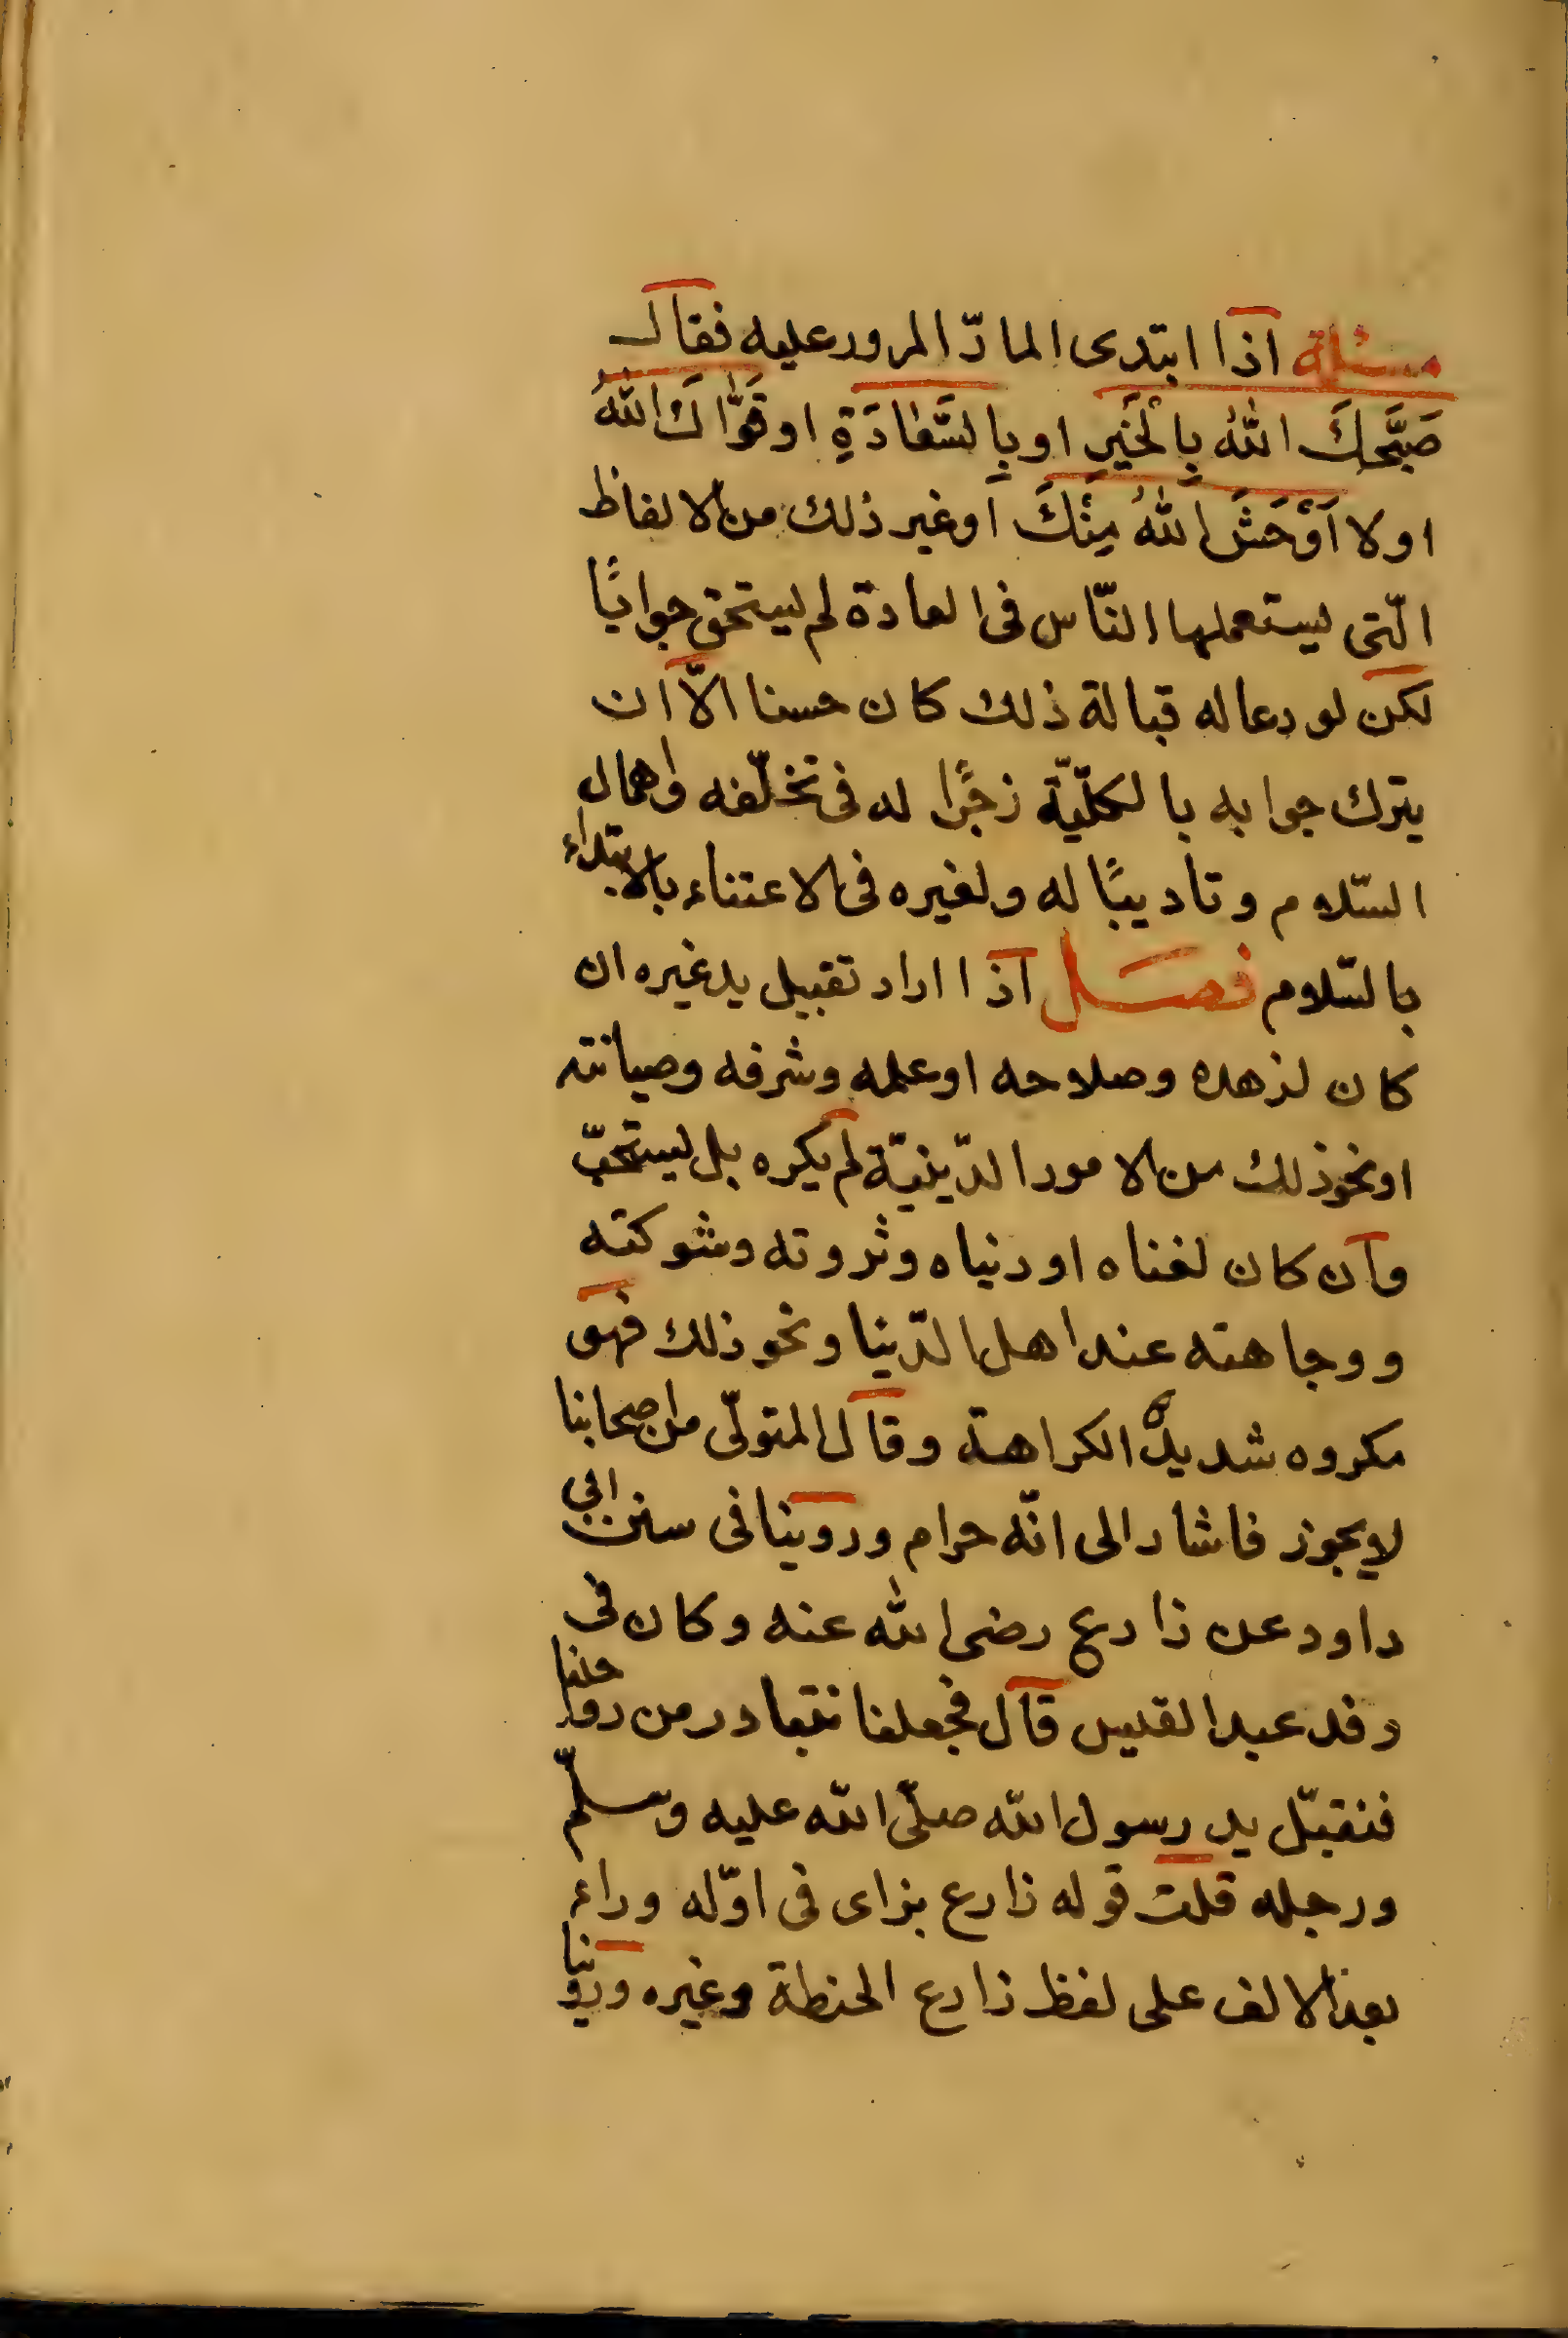 مسئلة اذا ابتدى المارّ المرور عليه فقال
صَبَّحَكَ اللّٰهُ بِالْخَيرِ او بِالسَّعَادَةِ او قَوَّاكَ اللّٰهُ
او لا اَوْحَشَ اللّٰهُ مِنْكَ او غير ذلك من الالفاظ
الّتى يستعملها النّاس فى العادة لم يستحق جوابًا
لكن لو دعا له قبالة ذلك كان حسنا الّا ان
يترك جوابه بالكلّيّة زجْرًا له فى تخلّفه واهمال
السّلام وتاديبًا له ولغيره فى الاعتناء بالابتداء
بالسّلام فصل اذا اراد تقبيل يد غيره ان
كان لزهده وصلاحه او علمه وشرفه وصيانته
او نحو ذلك من الامور الدّينيّة لم يكره بل يستحبّ
وان كان لغناه او دنياه وثروته وشوكته
ووجاهته عند اهل الدّينا ونحو ذلك فهو
مكروه شديدُ الكراهة وقال المتولّى من اصحابنا
لا يجوز فاشار الى انّه حرام وروينا فى سنن ابى
داود عن زارع رضى الله عنه وكان فى
وفد عبد القيس قال فجعلنا نتبادر من رواحلنا
فنقبّل يد رسول الله صلّى الله عليه وسلّم
ورجله قلت قوله زارع بزاى فى اوّله وراء
بعد الالف على لفظ زارع الحنطة وغيره وروّينا